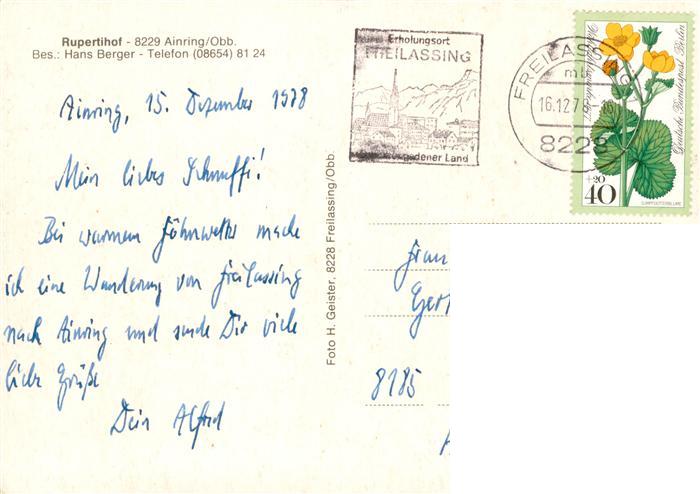 Rupertihof - 8229 Ainring/Obb.
Bes.: Hans Berger - Telefon (08654) 81 24
Ainring, 15. Dezember 1978
Mein liebes Schnuffi!
Bei warmem Föhnwetter mache
ich eine Wanderung von Freilassing
nach Ainring und sende Dir viele
liebe Grüße
Dein Alfred
Foto H. Geister, 8228 Freilassing/Obb.
Erholungsort
FREILASSING
gadener Land
FREILASSING
mb
16.12.78
8228
Deutsche Bundespost Berlin
+20
40
SUMPFDOTTERBLUME
Frau
8185